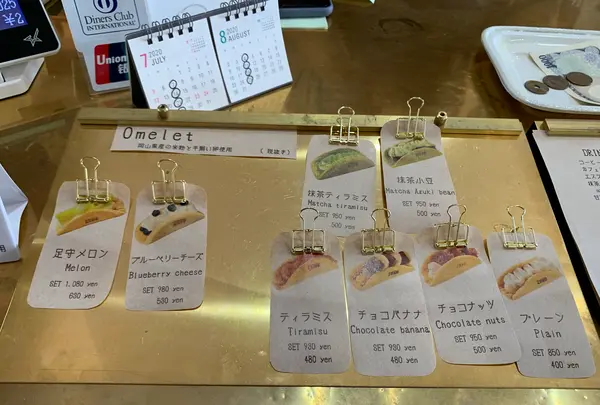 025
¥2
Diners Club
INTERNATIONAL
Union
7 2020 JULY
8 2020 AUGUST
Omelet
岡山県産の米粉と平飼い卵使用
(税抜き)
足守メロン
Melon
SET 1,080 yen
680 yen
ブルーベリーチーズ
Blueberry cheese
SET 980 yen
530 yen
抹茶ティラミス
Matcha tiramisu
SET 980 yen
500 yen
抹茶小豆
Matcha Azuki bean
950 yen
500 yen
ティラミス
Tiramisu
SET 930 yen
480 yen
チョコバナナ
Chocolate banana
SET 930 yen
480 yen
チョコナッツ
Chocolate nuts
SET 950 yen
500 yen
プレーン
Plain
SET 850 yen
400 yen